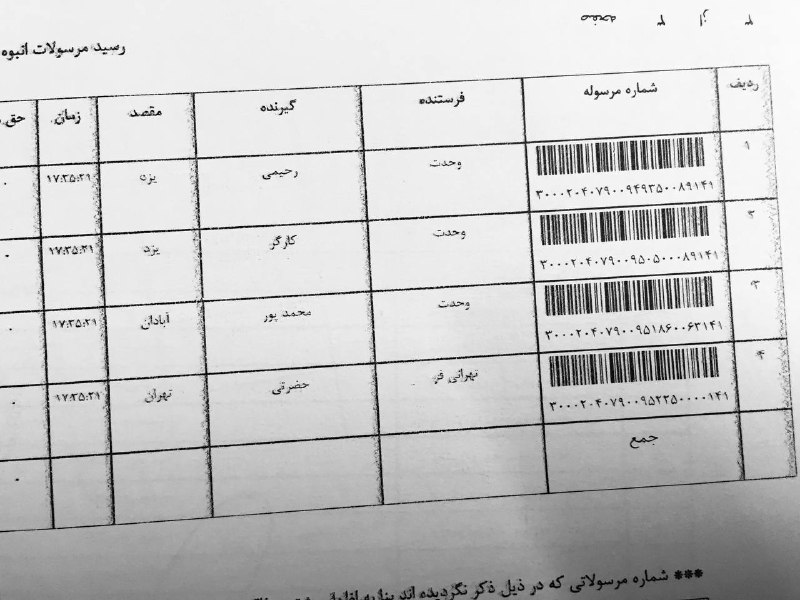 صفحه ۳ از ۳
رسید مرسولات انبوه
ردیف شماره مرسوله فرستنده گیرنده مقصد زمان حق
۱ ۳۰۰۰۲۰۴۰۷۹۰۰۹۴۹۳۵۰۰۸۹۱۴۱ وحدت رحیمی یزد ۱۷:۳۵:۳۱ ۰
۲ ۳۰۰۰۲۰۴۰۷۹۰۰۹۵۰۵۰۰۰۸۹۱۴۱ وحدت کارگر یزد ۱۷:۳۵:۳۱ ۰
۳ ۳۰۰۰۲۰۴۰۷۹۰۰۹۵۱۸۶۰۰۶۳۱۴۱ وحدت محمد پور آبادان ۱۷:۳۵:۳۱ ۰
۴ ۳۰۰۰۲۰۴۰۷۹۰۰۹۵۲۲۵۰۰۰۰۱۴۱ تهرانی فر حضرتی تهران ۱۷:۳۵:۳۱ ۰
جمع ۰
*** شماره مرسولاتی که در ذیل ذکر نگردیده اند بنا به